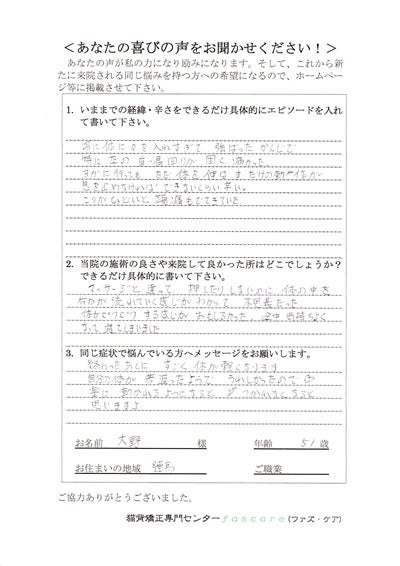 ＜あなたの喜びの声をお聞かせください！＞
あなたの声が私の力になり励みになります。そして、これから新
たに来院される同じ悩みを持つ方への希望になるので、ホームペー
ジ等に掲載させて下さい。
1. いままでの経緯・辛さをできるだけ具体的にエピソードを入れ
て書いて下さい。
常に体に力を入れすぎて 強ばったかんじで
特に 左の 首・肩回りが 固く 痛かった
こりがひどいと 頭痛もでてきていた
2. 当院の施術の良さや来院して良かった所はどこでしょうか？
できるだけ具体的に書いて下さい。
マッサージと違って 押したりしないのに 体の中を
何かが 流れていく感じが わかって 不思議だった
する感じが おもしろかった
寝てしまいました
3. 同じ症状で悩んでいる方へメッセージをお願いします。
終わったあとに すごく 体が軽くなります
うれしかったので
楽に 動かせるようになると
思いますよ
お名前 大野 様 年齢 51 歳
お住まいの地域 練馬 ご職業
ご協力ありがとうございました。
猫背矯正専門センターfascare(ファス・ケア)